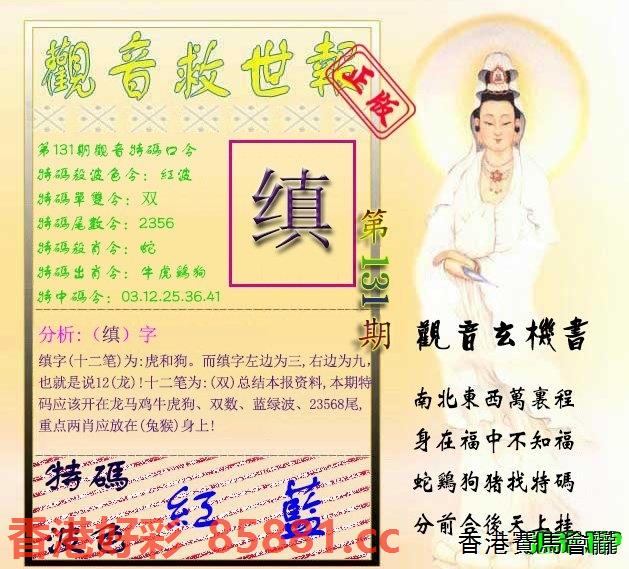 觀音救世報
正版
第131期觀音特碼口令
特碼殺波色令：紅波
特碼單雙令：双
特碼尾數令：2356
特碼殺肖令：蛇
特碼出肖令：牛虎鷄狗
特中碼令：03.12.25.36.41
缜
第131期
分析:（缜）字
缜字(十二笔)为:虎和狗。而缜字左边为三,右边为九,
也就是说12(龙)!十二笔为:(双)总结本报资料,本期特
码应该开在龙马鸡牛虎狗、双数、蓝绿波、23568尾,
重点两肖应放在(兔猴)身上!
特碼
波色
紅 藍
香港好彩 85881.cc
觀音玄機書
南北東西萬裏程
身在福中不知福
蛇鷄狗猪找特碼
分前合後天上挂
香港賽馬會